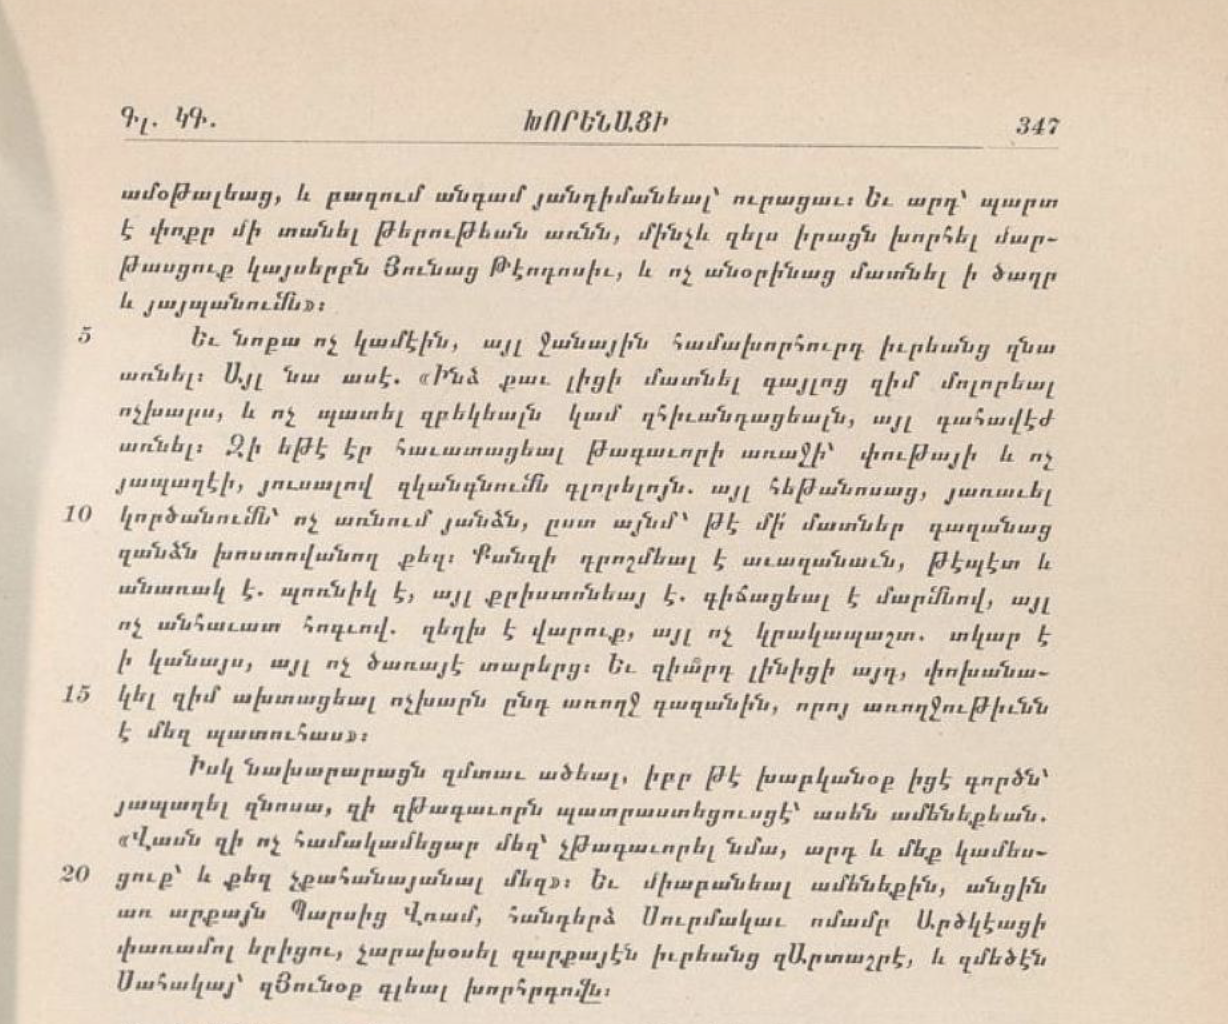 Գլ. ԿԳ. ԽՈՐԵՆԱՑԻ 347
ամօթալեաց, և բազում անգամ յանդիմանեալ՝ ուրացաւ։ Եւ արդ՝ պարտ
է փոքր մի տանել թերութեան առնն, մինչև զելս իրացն խորհել մար-
թասցուք կայսերբն Յունաց Թէոդոսիւ, և ոչ անօրինաց մատնել ի ծաղր
և յայպանումն»։
5 Եւ նոքա ոչ կամէին, այլ ջանային համախորհուրդ իւրեանց զնա
առնել։ Այլ նա ասէ. «Ինձ քաւ լիցի մատնել գայլոց զիմ մոլորեալ
ոչխարս, և ոչ պատել զբեկեալն կամ զհիւանդացեալն, այլ գահավէժ
առնել։ Զի եթէ էր հաւատացեալ թագաւորի առաջի՝ փութայի և ոչ
յապաղէի, յուսալով զկանգնումն գլորելոյն. այլ հեթանոսաց, յառաւել
10 կործանումն՝ ոչ առնում յանձն, ըստ այնմ՝ թէ մի՛ մատներ գազանաց
զանձն խոստովանող քեզ։ Քանզի դրոշմեալ է աւազանաւն, թէպէտ և
անառակ է. պոռնիկ է, այլ քրիստոնեայ է. գիճացեալ է մարմնով, այլ
ոչ անհաւատ հոգւով. զեղխ է վարուք, այլ ոչ կրակապաշտ. տկար է
ի կանայս, այլ ոչ ծառայէ տարերց։ Եւ զիա՞րդ լինիցի այդ, փոխանա-
15 կել զիմ ախտացեալ ոչխարն ընդ առողջ գազանին, որոյ առողջութիւնն
է մեզ պատուհաս»։
Իսկ նախարարացն զմտաւ ածեալ, իբր թէ խաբկանօք իցէ գործն՝
յապաղել զնոսա, զի զթագաւորն պատրաստեցուսցէ՝ ասեն ամենեքեան.
«Վասն զի ոչ համակամեցար մեզ՝ չթագաւորել նմա, արդ և մեք կամես-
20 ցուք՝ և քեզ չքահանայանալ մեզ»։ Եւ միաբանեալ ամենեքին, անցին
առ արքայն Պարսից Վռամ, հանդերձ Սուրմակաւ ոմամբ Արծկէացի
փառամոլ երիցու, չարախօսել զարքայէն իւրեանց զԱրտաշրէ, և զմեծէն
Սահակայ՝ զՅունօք գլեալ խորհրդովն։